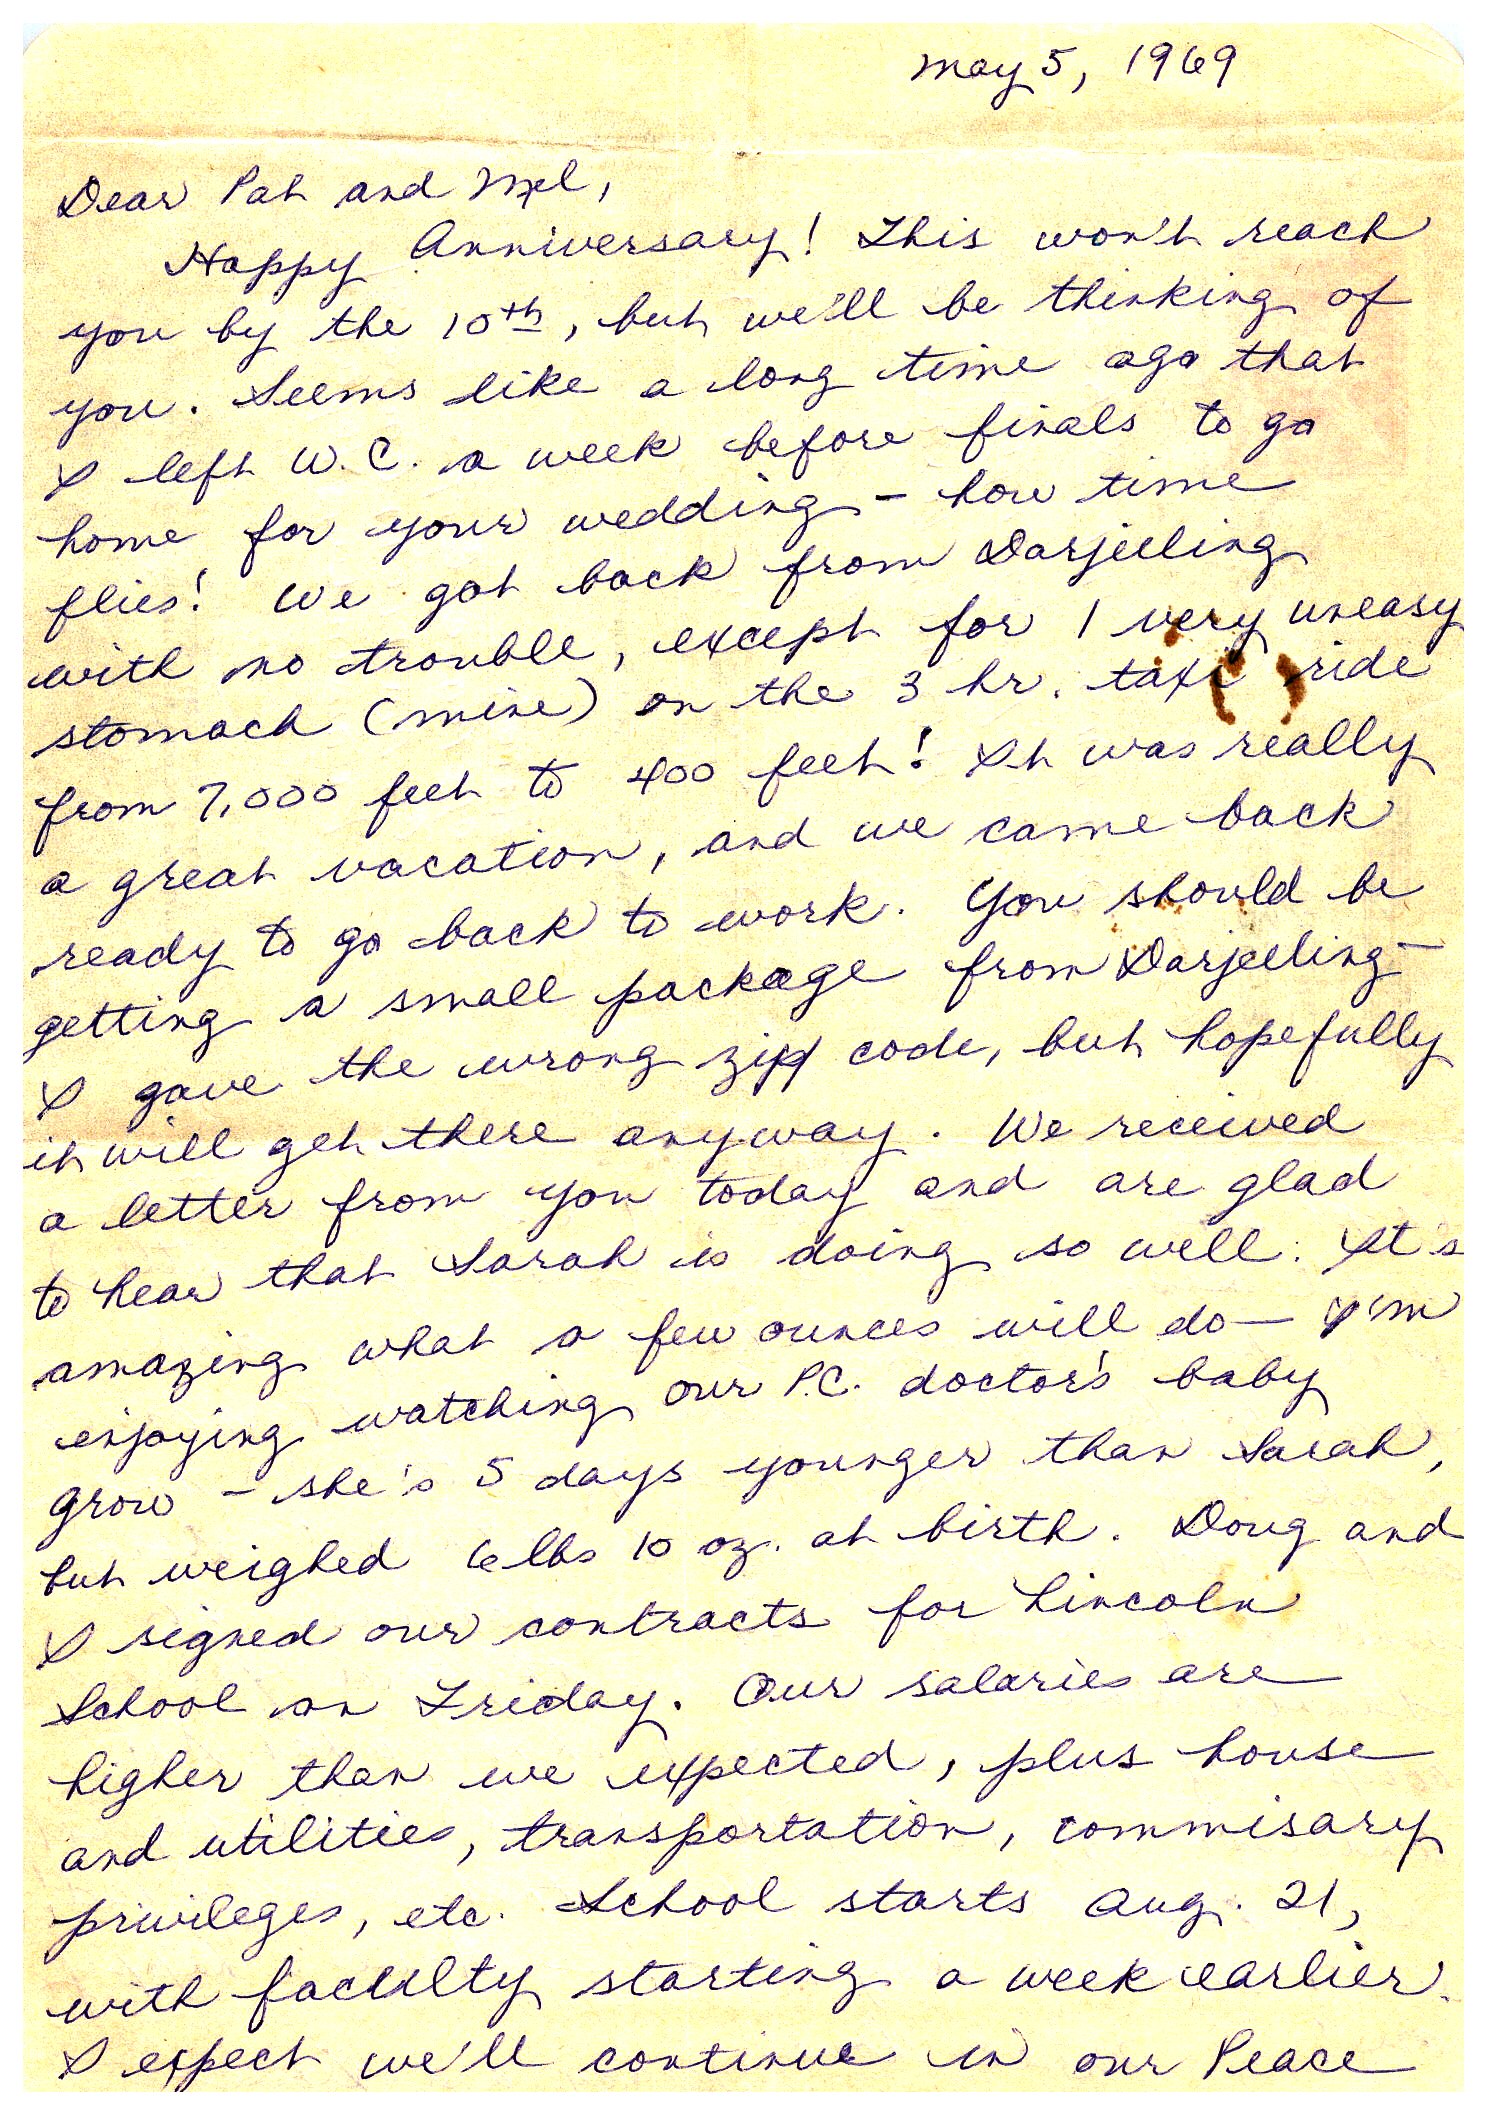 May 5, 1969
Dear Pat and Mel,
Happy Anniversary! This won't reach
you by the 10th, but we'll be thinking of
you. Seems like a long time ago that
I left W.C. a week before finals to go
home for your wedding - how time
flies! We got back from Darjeeling
with no trouble, except for 1 very uneasy
stomach (mine) on the 3 hr. taxi ride
from 7,000 feet to 400 feet! It was really
a great vacation, and we came back
ready to go back to work. You should be
getting a small package from Darjeeling -
I gave the wrong zip code, but hopefully
it will get there anyway. We received
a letter from you today and are glad
to hear that Sarah is doing so well. It's
amazing what a few ounces will do - I'm
enjoying watching our P.C. doctor's baby
grow - she's 5 days younger than Sarah,
but weighed 6 lbs 10 oz. at birth. Doug and
I signed our contracts for Lincoln
School on Friday. Our salaries are
higher than we expected, plus house
and utilities, transportation, commisary
privileges, etc. School starts Aug. 21,
with faculty starting a week earlier.
I expect we'll continue in our Peace